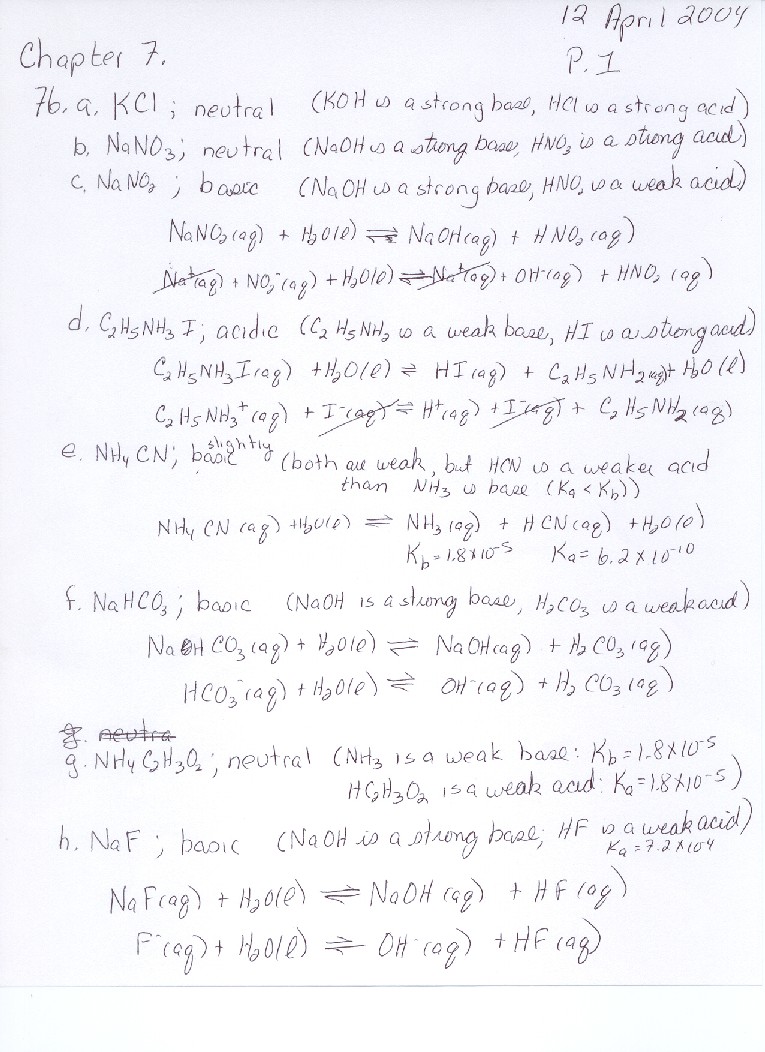 12 April 2004
Chapter 7.
P. 1
76. a. KCl ; neutral (KOH is a strong base, HCl is a strong acid)
b. NaNO₃; neutral (NaOH is a strong base, HNO₃ is a strong acid)
c. NaNO₂ ; basic (NaOH is a strong base, HNO₂ is a weak acid)
NaNO₂(aq) + H₂O(l) ⇌ NaOH(aq) + HNO₂(aq)
Na⁺(aq) + NO₂⁻(aq) + H₂O(l) ⇌ Na⁺(aq) + OH⁻(aq) + HNO₂ (aq)
d. C₂H₅NH₃I; acidic (C₂H₅NH₂ is a weak base, HI is a strong acid)
C₂H₅NH₃I(aq) + H₂O(l) ⇌ HI(aq) + C₂H₅NH₂(aq) + H₂O(l)
C₂H₅NH₃⁺(aq) + I⁻(aq) ⇌ H⁺(aq) + I⁻(aq) + C₂H₅NH₂(aq)
e. NH₄CN; slightly basic (both are weak, but HCN is a weaker acid
than NH₃ is base (Ka < Kb))
NH₄CN(aq) + H₂O(l) ⇌ NH₃(aq) + HCN(aq) + H₂O(l)
Kb = 1.8 x 10⁻⁵ Ka = 6.2 x 10⁻¹⁰
f. NaHCO₃ ; basic (NaOH is a strong base, H₂CO₃ is a weak acid)
NaHCO₃(aq) + H₂O(l) ⇌ NaOH(aq) + H₂CO₃(aq)
HCO₃⁻(aq) + H₂O(l) ⇌ OH⁻(aq) + H₂CO₃(aq)
g. neutra
g. NH₄C₂H₃O₂; neutral (NH₃ is a weak base: Kb = 1.8 x 10⁻⁵
HC₂H₃O₂ is a weak acid: Ka = 1.8 x 10⁻⁵)
h. NaF ; basic (NaOH is a strong base; HF is a weak acid)
Ka = 7.2 x 10⁴
NaF(aq) + H₂O(l) ⇌ NaOH(aq) + HF(aq)
F⁻(aq) + H₂O(l) ⇌ OH⁻(aq) + HF(aq)